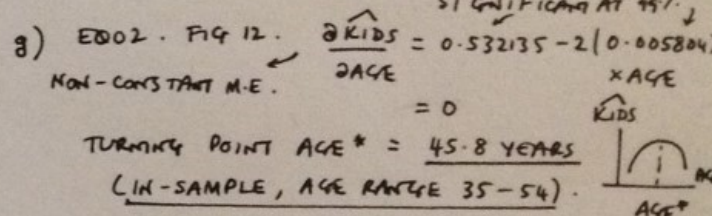 SIGNIFICANT AT 99%
g) EQ02. FIG 12. ∂KIDŜ/∂AGE = 0.532135 - 2(0.005804)
NON-CONSTANT M.E. × AGE
= 0
TURNING POINT AGE* = 45.8 YEARS
(IN-SAMPLE, AGE RANGE 35-54).
KIDŜ
AGE*